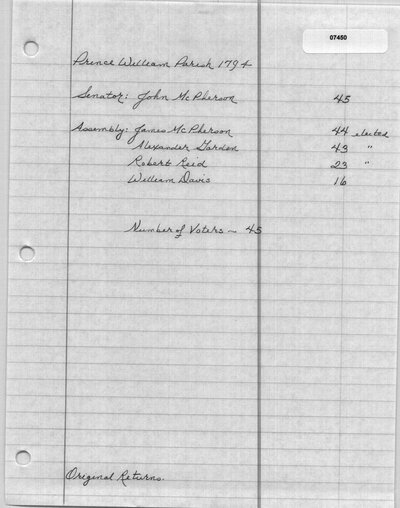 07450
Prince William Parish 1794
Senator: John McPherson 45
Assembly: James McPherson 44 elected
Alexander Gordon 43 "
Robert Reid 23 "
William Davis 16
Number of Voters ~ 45
Original Returns.